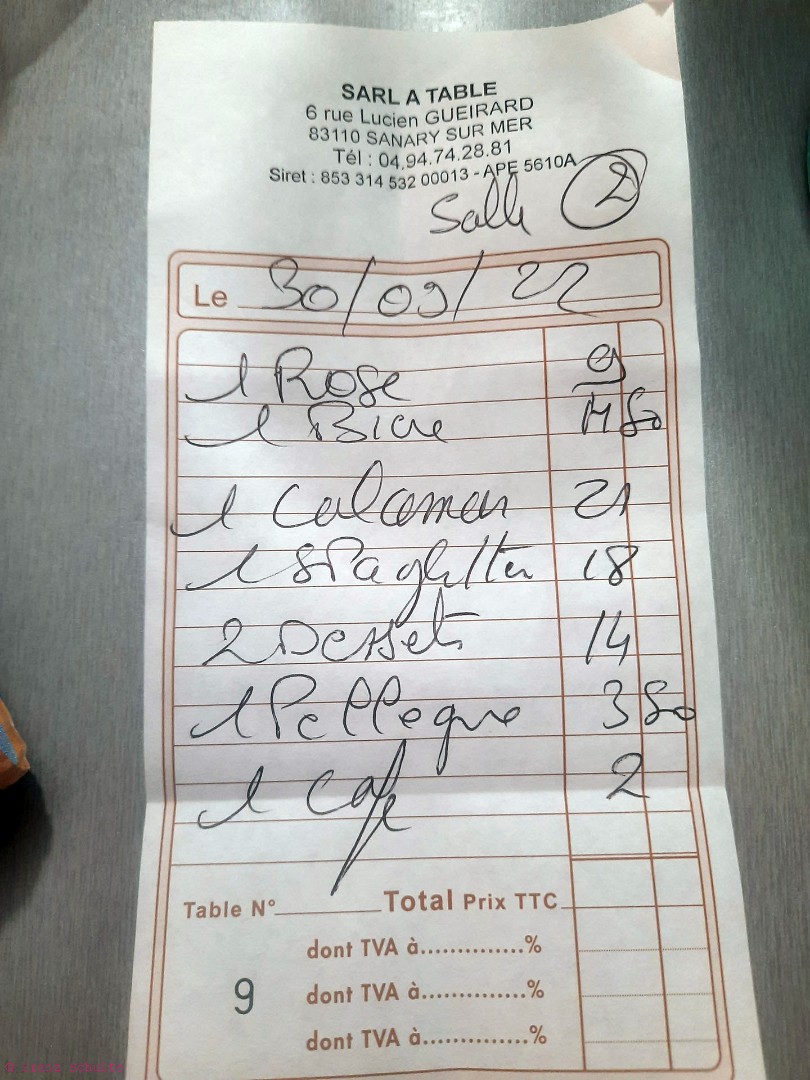 SARL A TABLE
6 rue Lucien GUEIRARD
83110 SANARY SUR MER
Tél : 04.94.74.28.81
Siret : 853 314 532 00013 - APE 5610A
Salle 2
Le 30/09/22
1 Rose 9
1 Biere 4 80
1 Calamar 21
1 SPaghetti 18
2 Dessert 14
1 Pellegrino 3 80
1 Cafe 2
Table N° Total Prix TTC
dont TVA à..............%
9 dont TVA à..............%
dont TVA à..............%